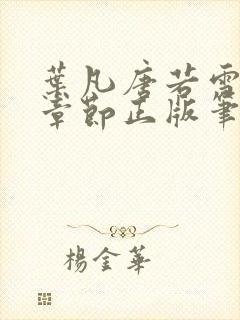 葉凡唐若雪
章節正版筆
楊金華